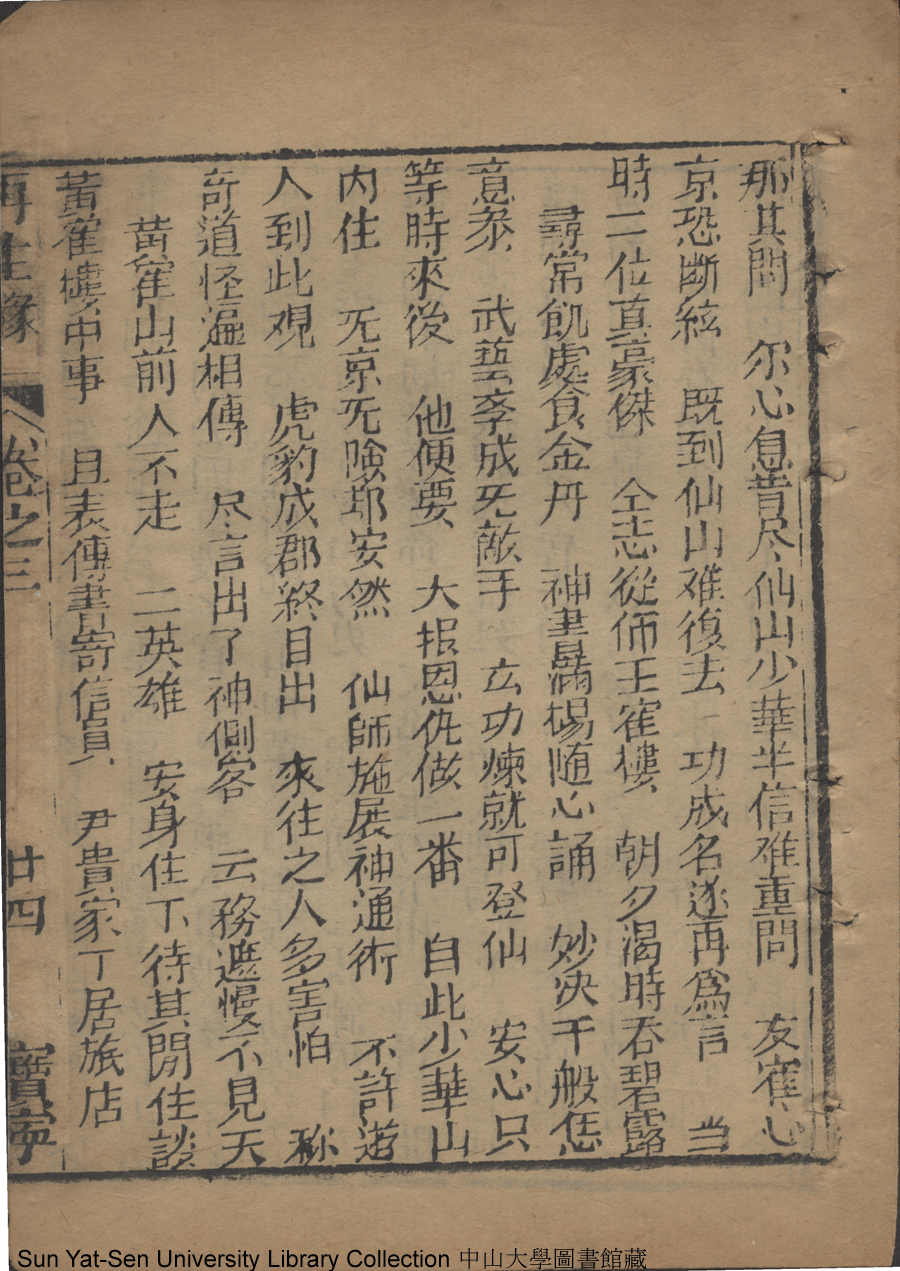 那其間　尔心息昔尽仙山少華半信难重問　友崔心
京恐断絃　既到仙山难復去　功成名遂再為言　当
時二位真豪傑　仝志從师王崔樓　朝夕渴時吞碧露
尋常飢處食金丹　神書滿楊随心誦　妙决千般恁
意叅　武藝李成旡敵手　立功煉就可登仙　安心只
等時來後　他便要　大报恩仇做一番　自此少華山
内住　旡京旡險耶安然　仙師施展神通術　不許道
人到此观　虎豹成郡終目出　來往之人多害怕　称
奇道怪遍相傳　尽言出了神側客　云務遮慢不見天
黄崔山前人不走　二英雄　安身住下待其閒住談
黄崔樓中事　且表傅書寄信員　尹貴家丁居旅店
再生緣　卷之三　廿四　寶寧
Sun Yat-Sen University Library Collection 中山大學圖書館藏